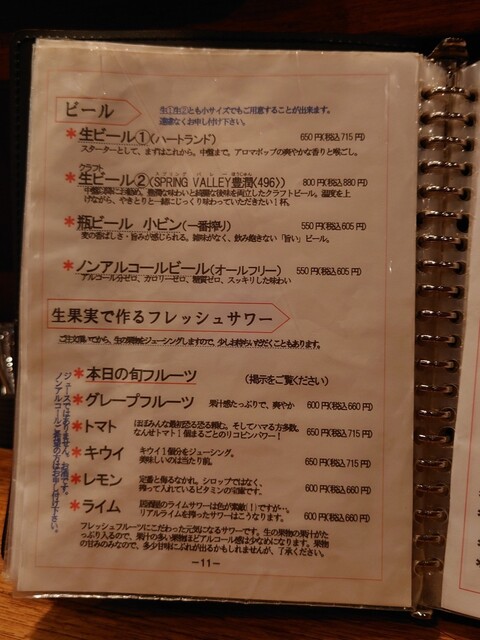 ビール
生①生②とも小サイズでもご用意することが出来ます。
遠慮なくお申し付け下さい。
*生ビール①(ハートランド) 650円(税込715円)
スターターとして、まずはこれから。中盤まで。アロマホップの爽やかな香りと喉ごし。
クラフト
*生ビール②(SPRING VALLEY豊潤〈496〉) 800円(税込880円)
げながら、やきとりと一緒にじっくり味わっていただきたい1杯。
*瓶ビール 小ビン(一番搾り) 550円(税込605円)
麦の香ばしさ・旨みが感じられる。雑味がなく、飲み飽きない「旨い」ビール。
*ノンアルコールビール(オールフリー) 550円(税込605円)
アルコール分ゼロ、カロリーゼロ、糖質ゼロ、スッキリした味わい
生果実で作るフレッシュサワー
ご注文頂いてから、生の果物をジューシングしますので、少しお待ちいただくこともあります。
*本日の旬フルーツ (掲示をご覧ください)
*グレープフルーツ 果汁感たっぷりで、爽やか 600円(税込660円)
*トマト ほぼみんな最初恐る恐る頼む。そしてハマる方多数。
なんせトマト1個まるごとのリコピンパワー! 650円(税込715円)
*キウイ キウイ1個分をジューシング。
美味しいのは当たり前。 650円(税込715円)
*レモン 定番と侮るなかれ。シロップではなく、
搾って入れているビタミンの宝庫です。 600円(税込660円)
*ライム 居酒屋のライムサワーは色が素敵(!)ですが…。
リアルライムを搾ったサワーはこうなります。 600円(税込660円)
ジュースではありません。お酒です。
ノンアルコールご希望の方はお申し付け下さい。
フレッシュフルーツにこだわった元気になるサワーです。生の果物の果汁がた
っぷり入るので、果汁の多い果物ほどアルコール感は少なめになります。果物
の甘みのみなので、多少甘味にぶれが出るかもしれませんが、了承ください。
-11-